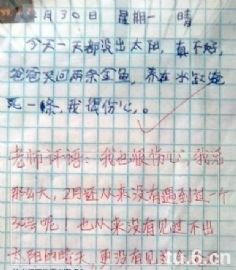 月30日 星期一 晴
今天一天都没出太阳,真不好,
爸爸买回两条金鱼,养在水缸淹
死一条,我很伤心。
老师评语:我也很伤心,我活
那么大,2月还从来没有遇到过一个
30号呢!也从来没有见过不出
太阳的晴天,更没有见过
tu.6.cn